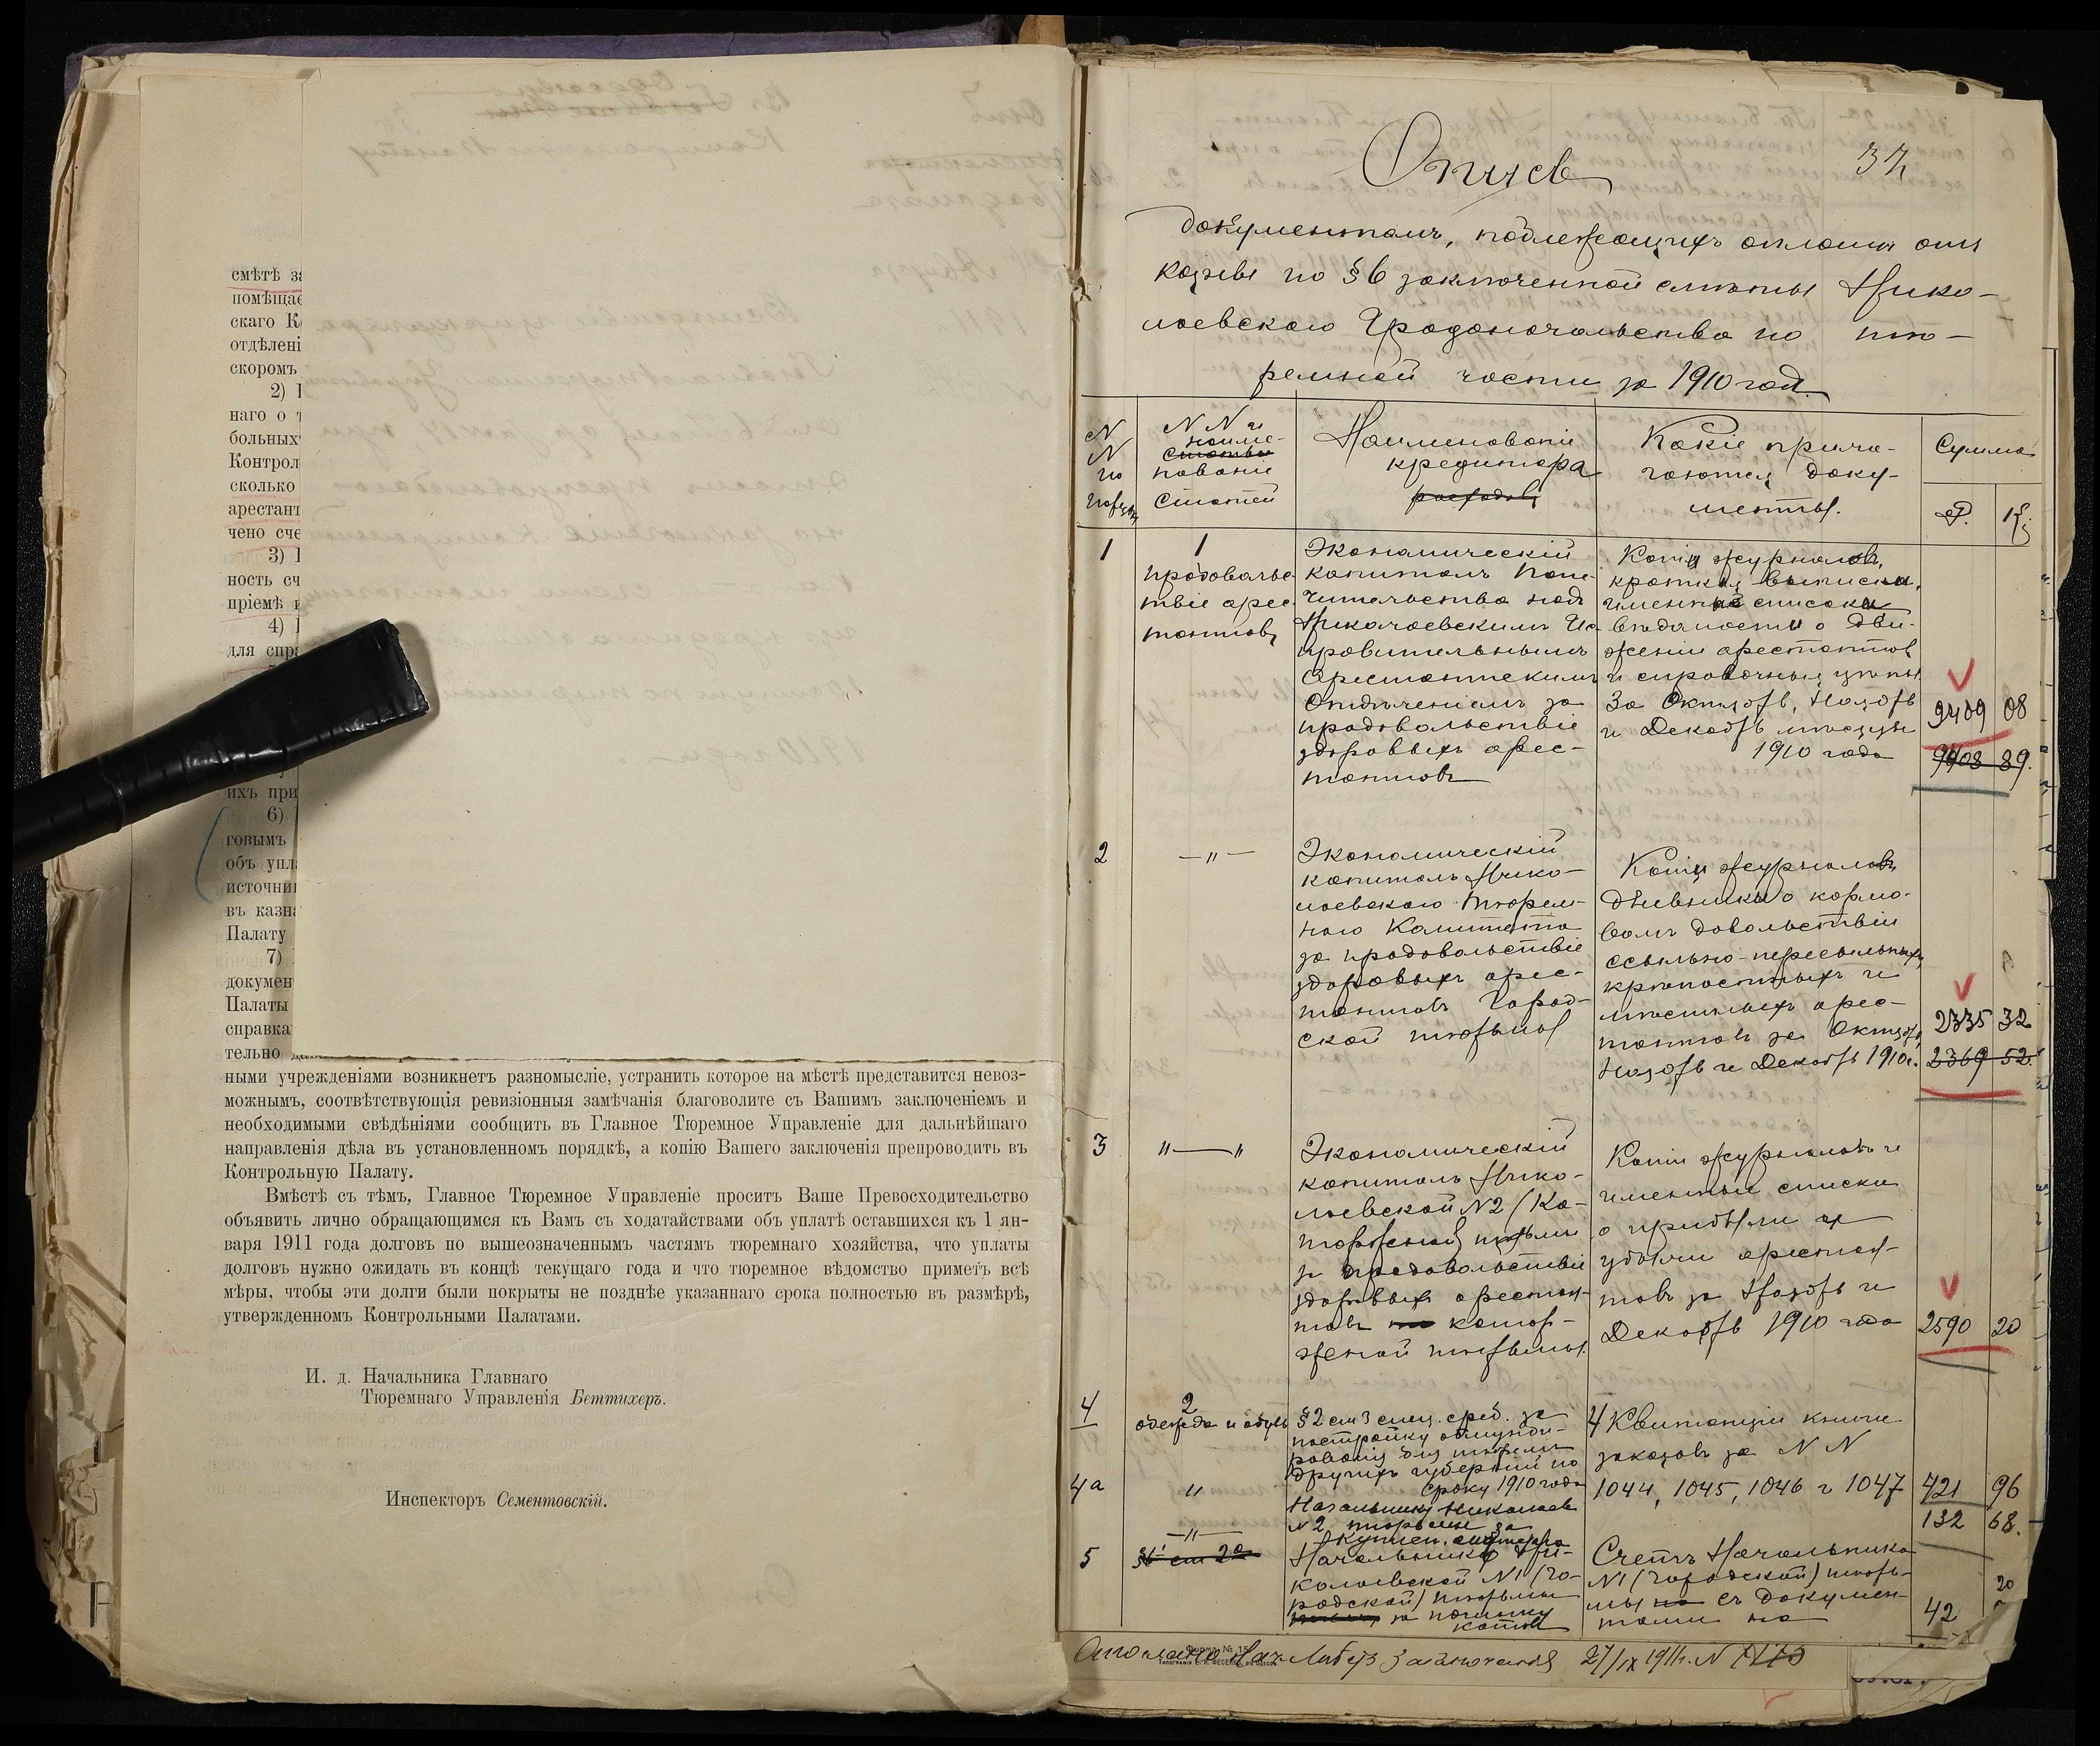 смѣтѣ
помѣщае
скаго К
отдѣлені
скоромъ
2)
наго о т
больных
Контрол
сколько
арестант
чено сче
3)
ность сч
пріемѣ
4)
для спр
ихъ при
6)
говымъ
объ упл
источни
въ казн
Палату
7)
докумен
Палаты
справка
тельно
ными учрежденіями возникнетъ разномысліе, устранить которое на мѣстѣ представится невоз-
можнымъ, соотвѣтствующія ревизіонныя замѣчанія благоволите съ Вашимъ заключеніемъ и
необходимыми свѣдѣніями сообщить въ Главное Тюремное Управленіе для дальнѣйшаго
направленія дѣла въ установленномъ порядкѣ, а копію Вашего заключенія препроводить въ
Контрольную Палату.
Вмѣстѣ съ тѣмъ, Главное Тюремное Управленіе проситъ Ваше Превосходительство
объявить лично обращающимся къ Вамъ съ ходатайствами объ уплатѣ оставшихся къ 1 ян-
варя 1911 года долговъ по вышеозначеннымъ частямъ тюремнаго хозяйства, что уплаты
долговъ нужно ожидать въ концѣ текущаго года и что тюремное вѣдомство приметъ всѣ
мѣры, чтобы эти долги были покрыты не позднѣе указаннаго срока полностью въ размѣрѣ,
утвержденномъ Контрольными Палатами.
И. д. Начальника Главнаго
Тюремнаго Управленія Беттихеръ.
Инспекторъ Сементовскій.
Опись
документамъ, подлежащихъ оплатѣ отъ
казны по §6 заключенной смѣты Нико-
лаевскаго Градоначальства по тю-
ремной части за 1910 год.
N N по порядк
N N и наиме-
нованіе
статей
Наименованіе
кредитора
расходовъ
Какіе прила-
гаются доку-
менты.
Сумма
Р. К.
1
1
продовольс
твіе арес
тантовъ
Экономическій
капиталъ Попе-
чительства надъ
Николаевскимъ Ис
правительнымъ
Арестантскимъ
Отдѣленіемъ за
продовольствіе
здоровыхъ арес-
тантовъ
Копія журналовъ,
краткая выписка,
именные списки
вѣдомости о дви-
женіи арестантовъ
и справочныя цѣны
За Октябрь, Ноябрь
и Декабрь мѣсяцы
1910 года
9409 08
9408 89.
2
— " —
Экономическій
капиталъ Нико-
лаевскаго тюрем-
наго Комитета
за продовольствіе
здоровыхъ арес-
тантовъ Город-
ской тюрьмы
Копія журналовъ
дневники о кормо-
вомъ довольствіи
ссыльно-пересыльныхъ,
крѣпостныхъ и
мѣстныхъ арес-
тантовъ за Октябрь,
Ноябрь и Декабрь 1910 г.
2335 32
2369 52.
3
" — "
Экономическій
капиталъ Нико-
лаевской N2 (Ка-
торжной) тюрьмы
за продовольствіе
здоровыхъ арестан-
товъ катор-
жной тюрьмы.
Копіи журналовъ и
именные списки
о прибыли и
убыли арестан-
товъ за Ноябрь и
Декабрь 1910 года
2590 20
4
2
одежда и обувь
§2 ст 3 спец. сред. за
постройку обмунди-
рованія для тюремъ
другихъ губерній по
сроку 1910 года
4 Квитанціи книги
заказовъ за N N
1044, 1045, 1046 и 1047
421 96
4а
"
Начальнику Николаев
N2 тюрьмы за
132 68.
5
— " —
§6 ст 2а
Начальнику Ни-
колаевской N1 (го-
родской) тюрьмы
за починку
котовъ
Счетъ Начальника
N1 (городской) тюрь-
мы съ докумен-
тами на
42 20
27/IX 1911 г. N